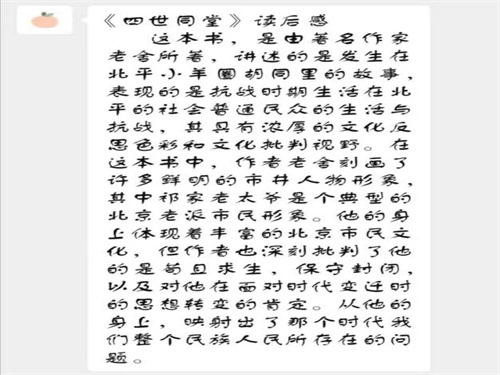 《四世同堂》读后感
这本书，是由著名作家
老舍所著，讲述的是发生在
北平小羊圈胡同里的故事，
表现的是抗战时期生活在北
平的社会普通民众的生活与
抗战，其具有浓厚的文化反
思色彩和文化批判视野。在
这本书中，作者老舍刻画了
许多鲜明的市井人物形象，
其中祁家老太爷是个典型的
北京老派市民形象。他的身
上体现着丰富的北京市民文
化，但作者也深刻批判了他
的是苟且求生，保守封闭，
以及对他在面对时代变迁时
的思想转变的肯定。从他的
身上，映射出了那个时代我
们整个民族人民所存在的问
题。